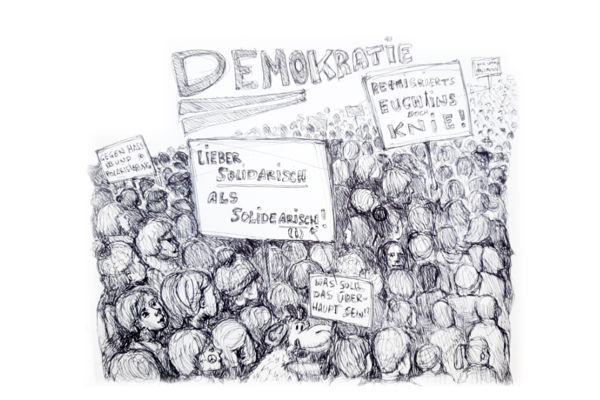 DEMOKRATIE
REMIGRIERTS
EUCH INS
DOCH
KNIE!
GEGEN HASS
UND
POLARISIERUNG
LIEBER
SOLIDARISCH
ALS
SOLIDEARISCH!
(!)
WAS SOLL
DAS ÜBER-
HAUPT SEIN!?